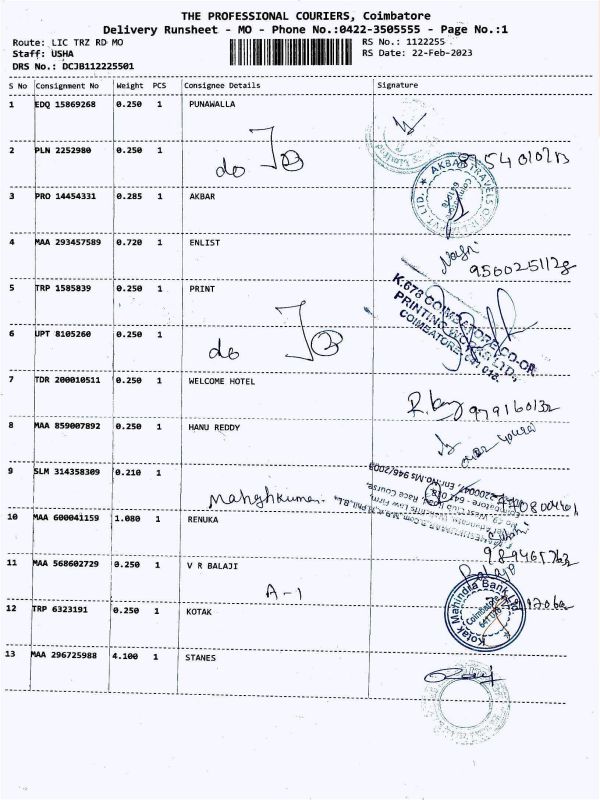 THE PROFESSIONAL COURIERS, Coimbatore
Delivery Runsheet - MO - Phone No.:0422-3505555 - Page No.:1
Route: LIC TRZ RD MO RS No.: 1122255
Staff: USHA RS Date: 22-Feb-2023
DRS No.: DCJB112225501
S No Consignment No Weight PCS Consignee Details Signature
1 EDQ 15869268 0.250 1 PUNAWALLA
2 PLN 2252980 0.250 1 do
AKBAR TRAVELS
3 PRO 14454331 0.285 1 AKBAR
Coimbatore 641018
4 MAA 293457589 0.720 1 ENLIST
9560251128
5 TRP 1585839 0.250 1 PRINT
K.678 COIMBATORE CO-OP
PRINTING WORKS LTD.,
COIMBATORE - 641 018.
6 UPT 8105260 0.250 1 do
7 TDR 200010511 0.250 1 WELCOME HOTEL
8 MAA 859007892 0.250 1 HANU REDDY
9 SLM 314358309 0.210 1
Maheshkumar
10 MAA 600041159 1.080 1 RENUKA
11 MAA 568602729 0.250 1 V R BALAJI
Balaji
A-1
12 TRP 6323191 0.250 1 KOTAK
Kotak Mahindra Bank Ltd
Coimbatore 641 018
13 MAA 296725988 4.100 1 STANES